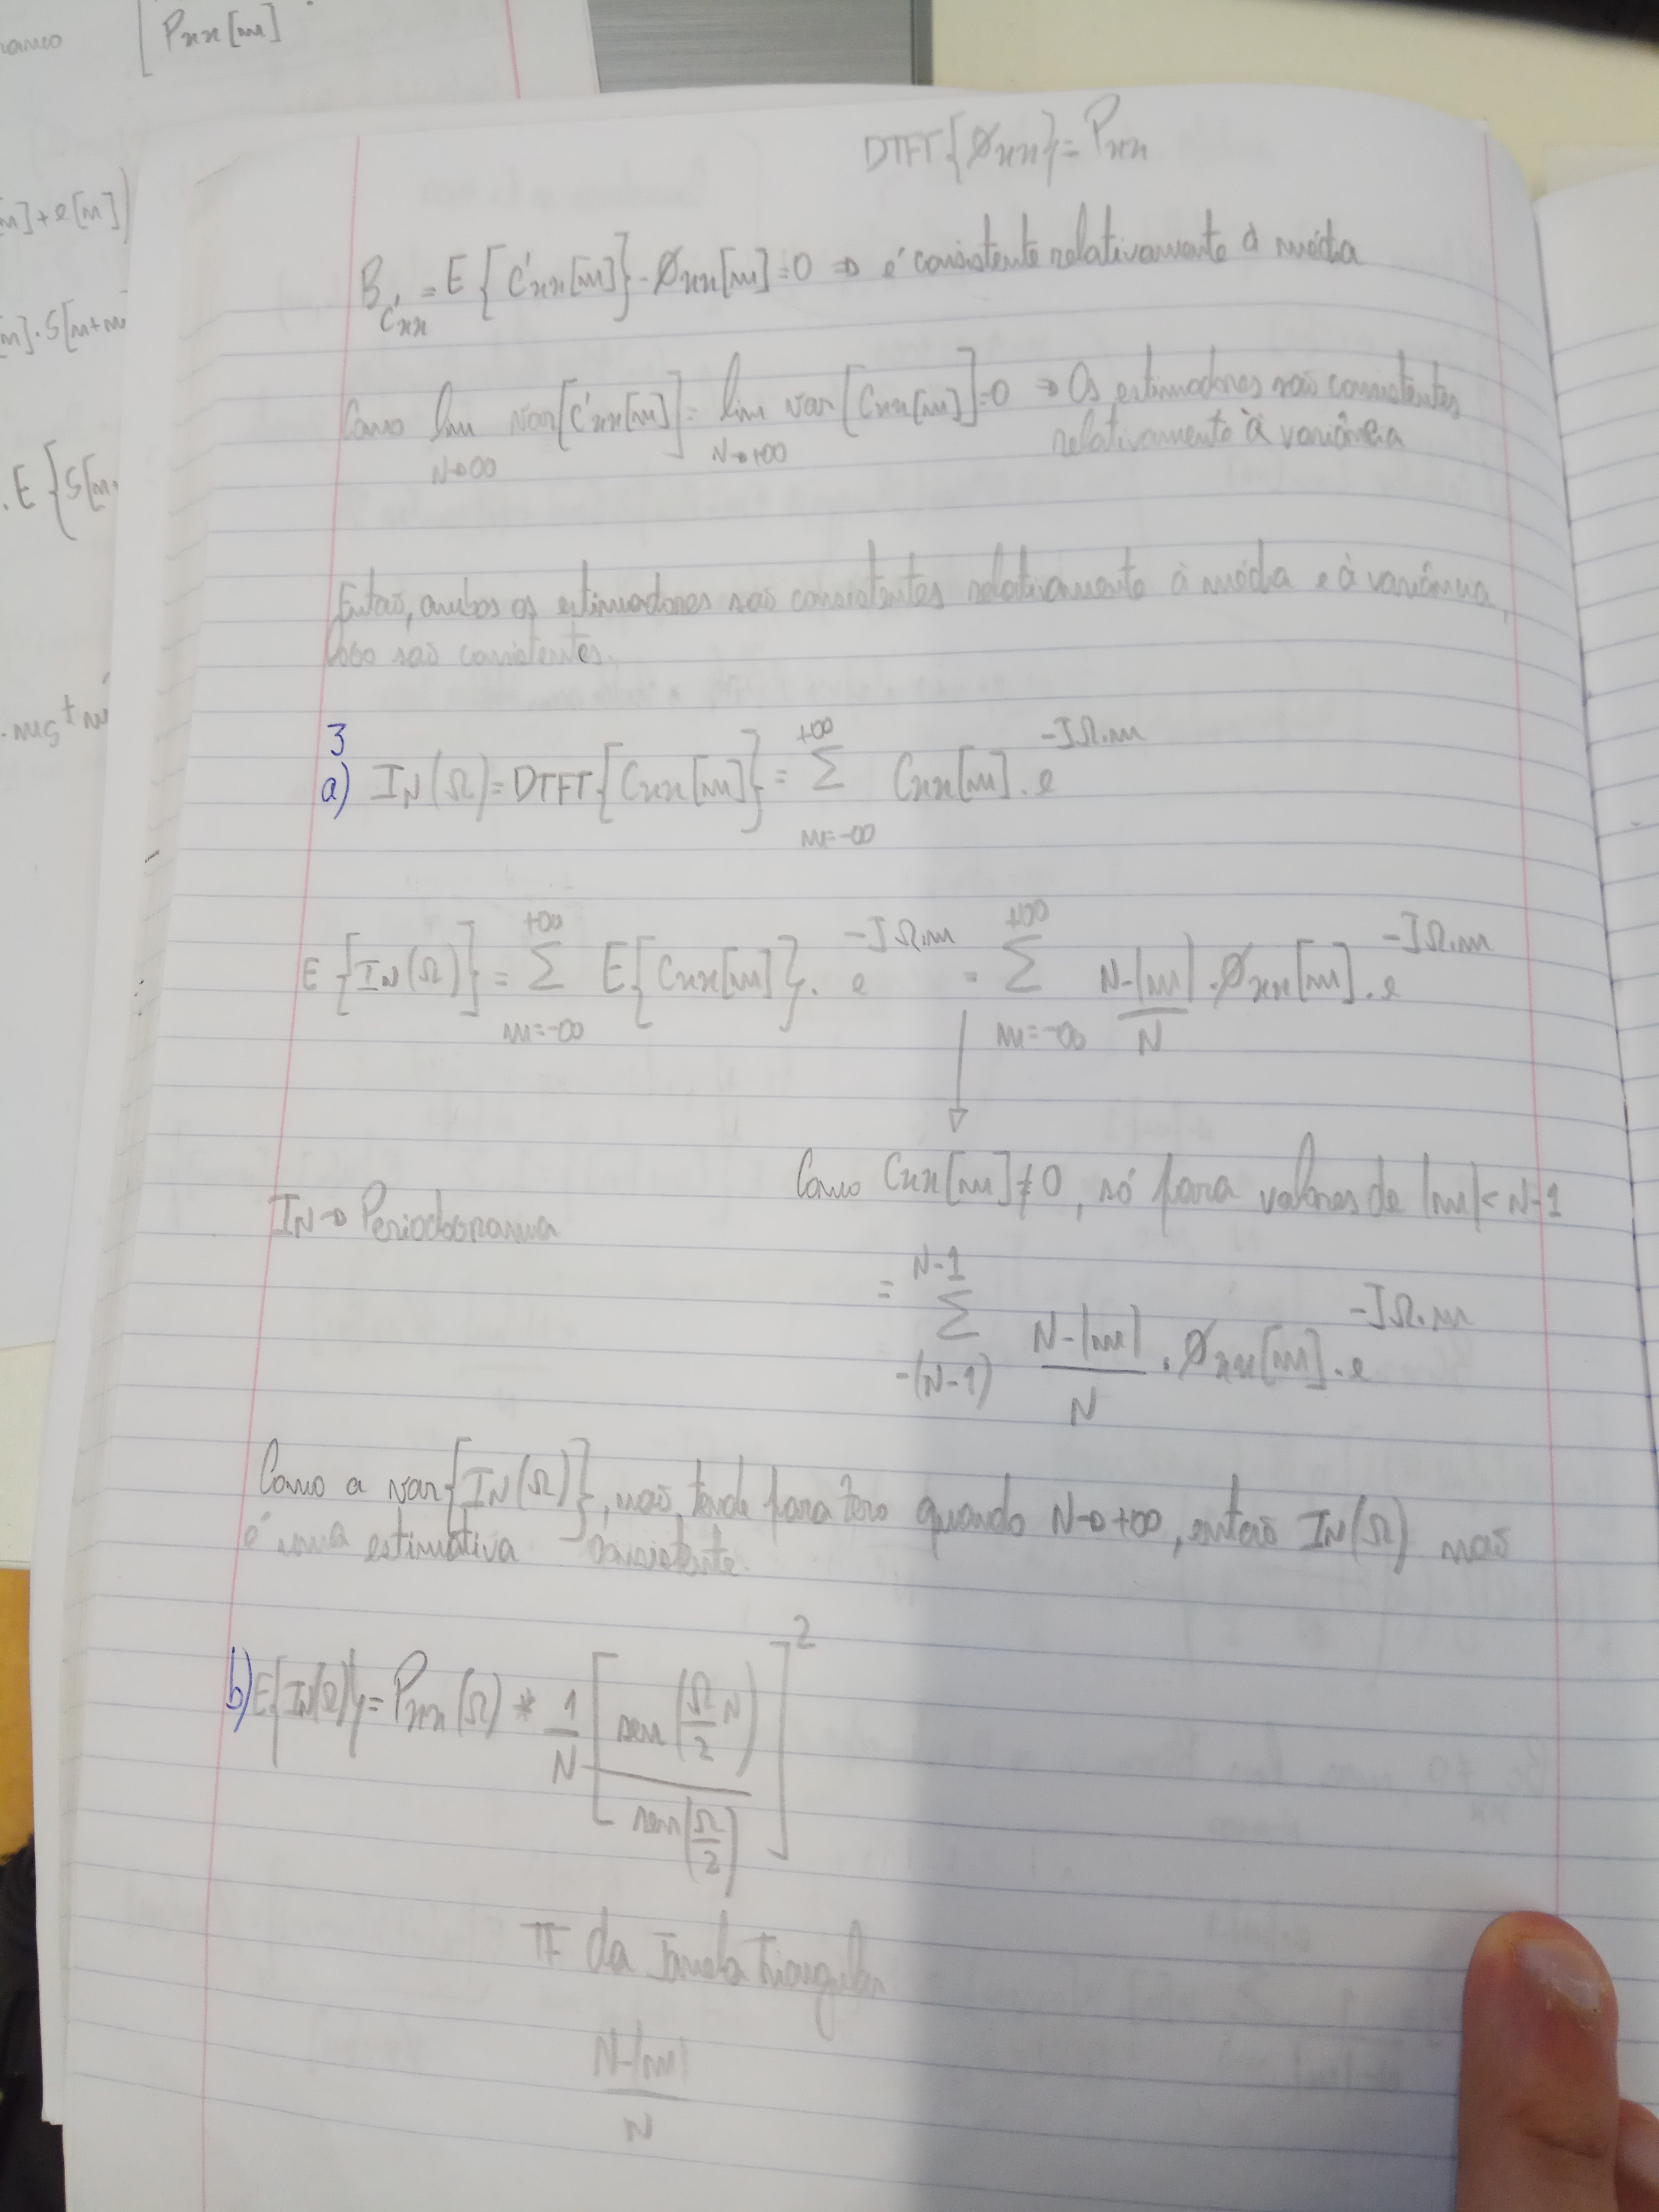 ramo [Pxx[m]
m]+e[m])
m]·S[m+m
.E{S[m
DTFT{Øxx}=Pxx
B_C'xx = E{C'xx[m]}-Øxx[m]=0 => é consistente relativamente à média
Como lim N→∞ var[C'xx[m]] = lim N→+∞ var[Cxx[m]]=0 => Os estimadores são consistentes
relativamente à variância
Então, ambos os estimadores são consistentes relativamente à média e à variância,
logo são consistentes.
3
a) IN(Ω)=DTFT{Cxx[m]} = +∞ Σ m=-∞ Cxx[m].e^-JΩ.m
E{IN(Ω)} = +∞ Σ m=-∞ E{Cxx[m]}.e^-JΩ.m = +∞ Σ m=-∞ N-|m|/N .Øxx[m].e^-JΩ.m
Como Cxx[m]≠0, só para valores de |m|<N-1
IN→Periodograma
= N-1 Σ -(N-1) N-|m|/N .Øxx[m].e^-JΩ.m
Como a var{IN(Ω)}, não tende para zero quando N→+∞, então IN(Ω) não
é uma estimativa consistente.
b) E{IN(Ω)}=Pxx(Ω) * 1/N [sen(Ω/2 N)/sen(Ω/2)]^2
TF da Janela Triangular
N-|m|/N